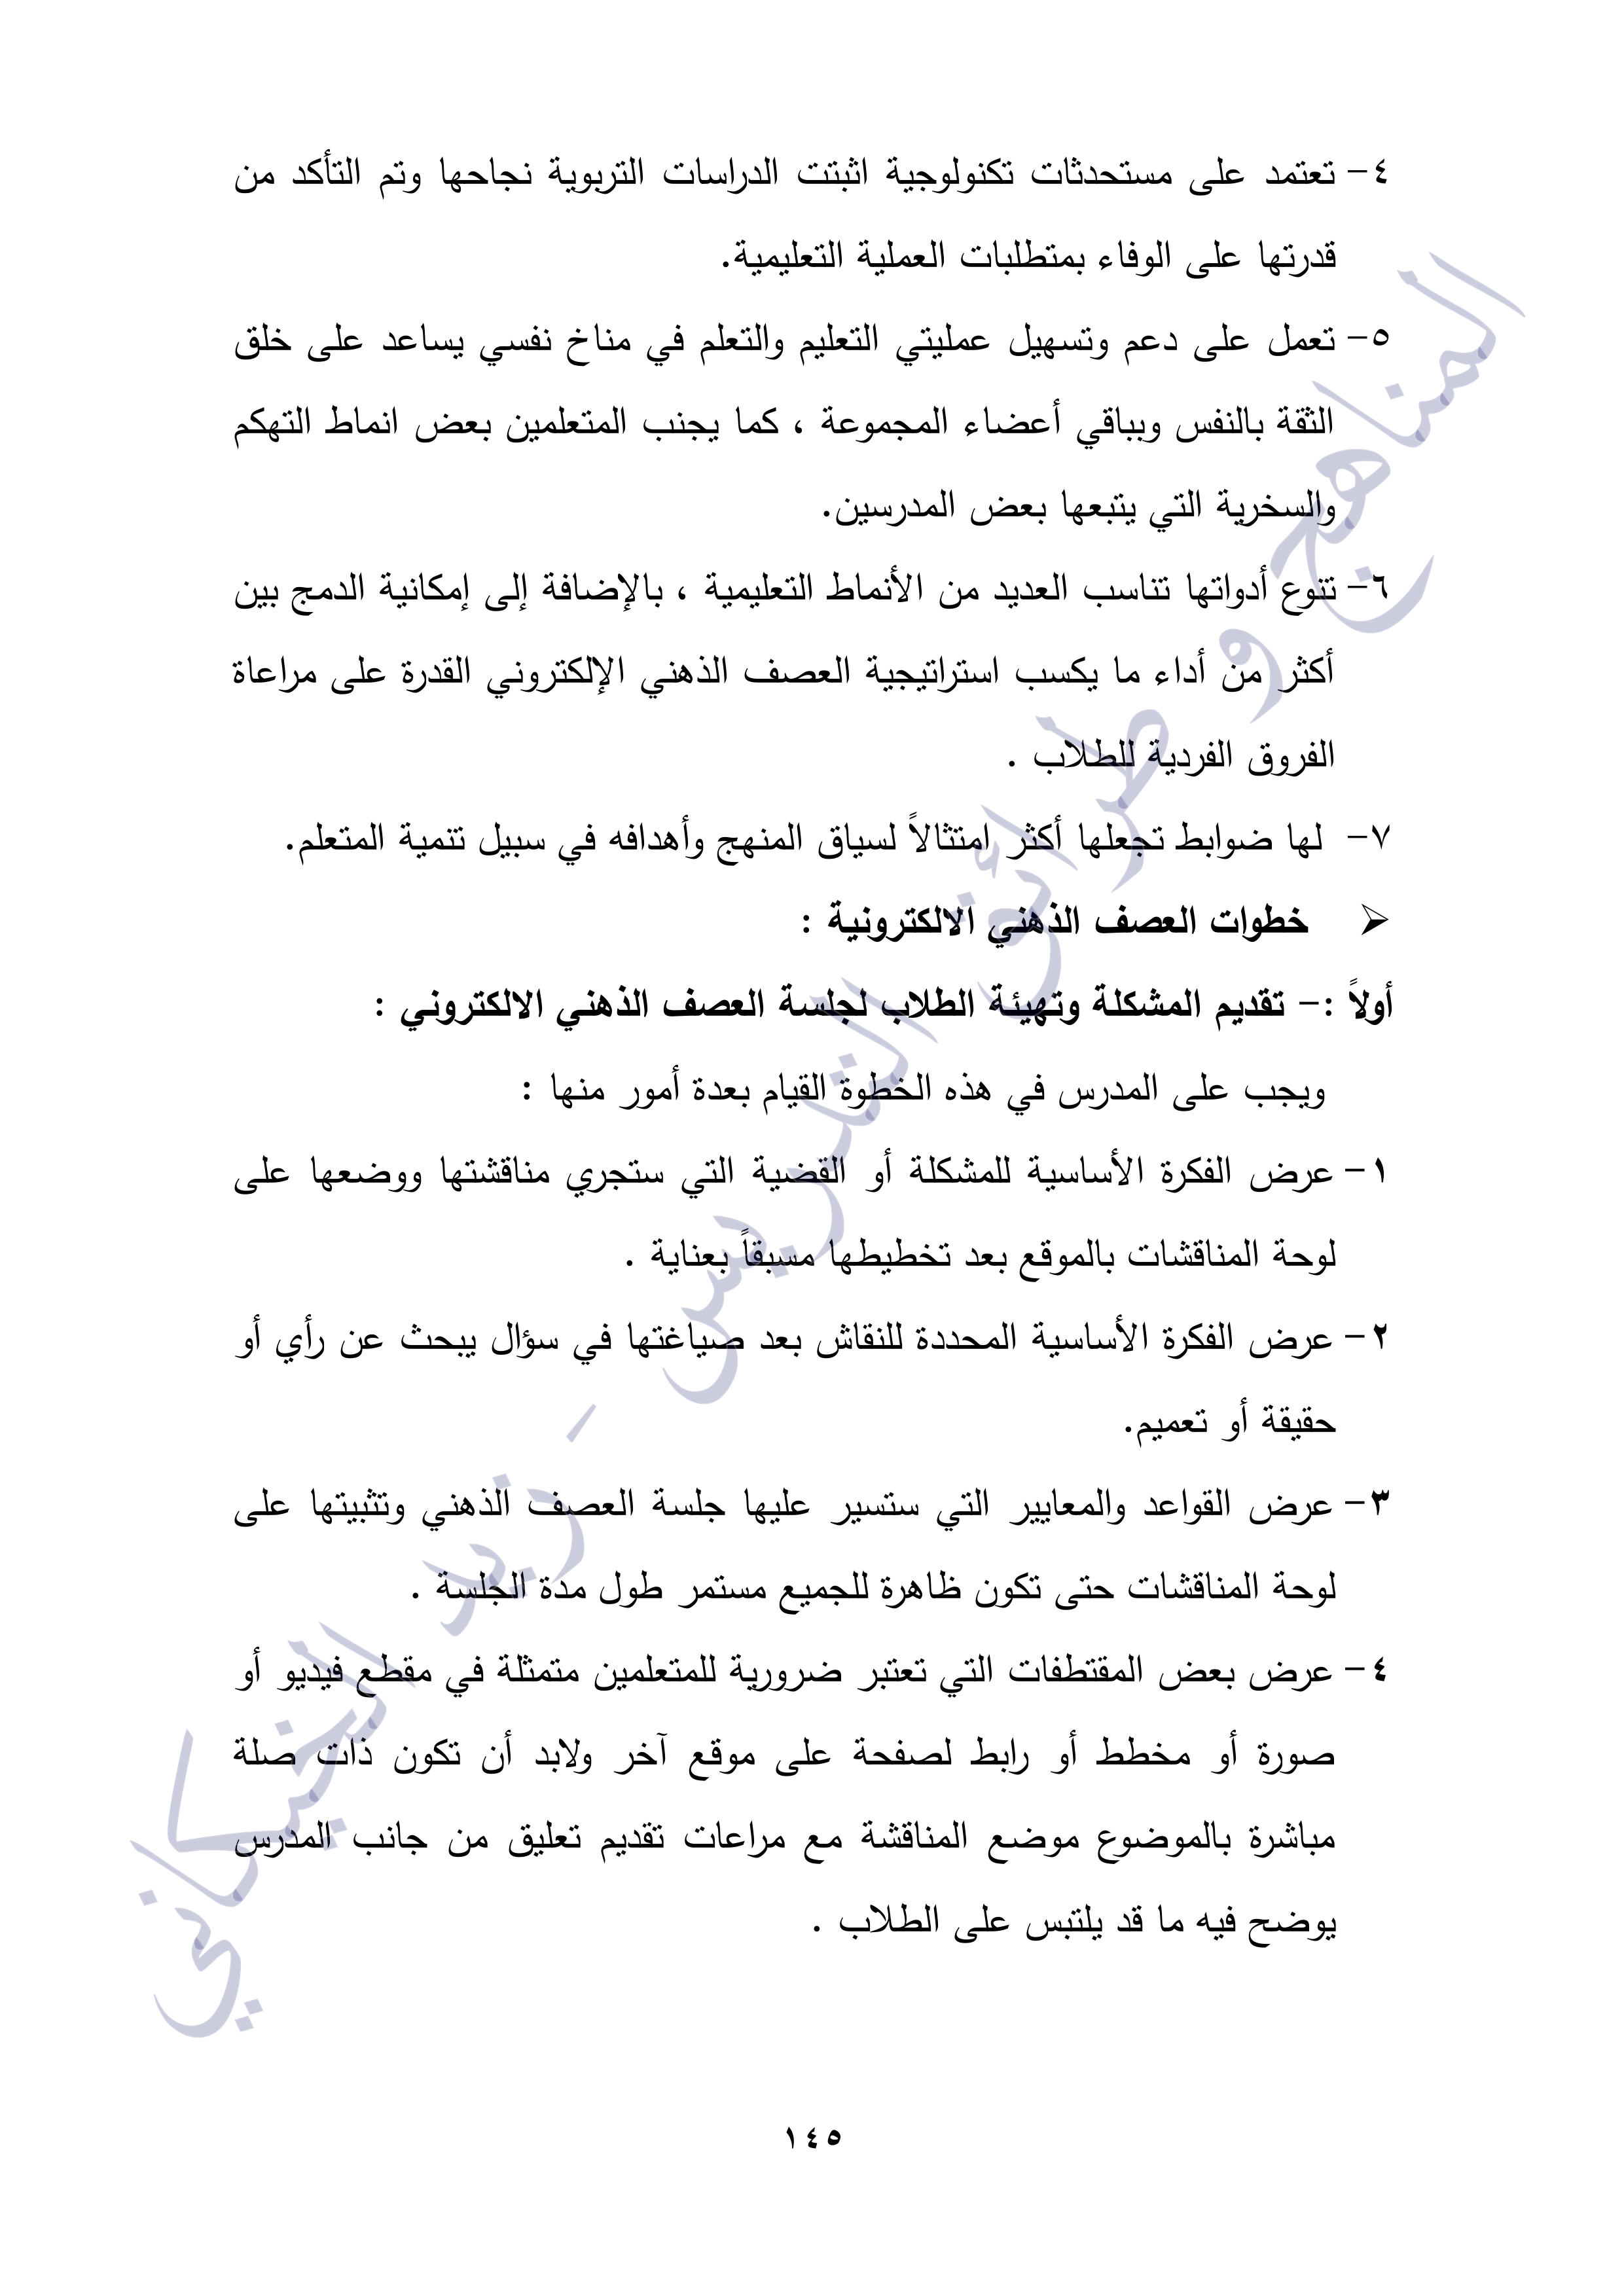 ٤- تعتمد على مستحدثات تكنولوجية اثبتت الدراسات التربوية نجاحها وتم التأكد من
قدرتها على الوفاء بمتطلبات العملية التعليمية.
٥- تعمل على دعم وتسهيل عمليتي التعليم والتعلم في مناخ نفسي يساعد على خلق
الثقة بالنفس وبباقي أعضاء المجموعة ، كما يجنب المتعلمين بعض انماط التهكم
والسخرية التي يتبعها بعض المدرسين.
٦- تتوع أدواتها تناسب العديد من الأنماط التعليمية ، بالإضافة إلى إمكانية الدمج بين
أكثر من أداء ما يكسب استراتيجية العصف الذهني الإلكتروني القدرة على مراعاة
الفروق الفردية للطلاب .
٧- لها ضوابط تجعلها أكثر امتثالاً لسياق المنهج وأهدافه في سبيل تنمية المتعلم.
⮚ خطوات العصف الذهني الالكترونية :
أولاً :- تقديم المشكلة وتهيئة الطلاب لجلسة العصف الذهني الالكتروني :
ويجب على المدرس في هذه الخطوة القيام بعدة أمور منها :
١- عرض الفكرة الأساسية للمشكلة أو القضية التي ستجري مناقشتها ووضعها على
لوحة المناقشات بالموقع بعد تخطيطها مسبقاً بعناية .
٢- عرض الفكرة الأساسية المحددة للنقاش بعد صياغتها في سؤال يبحث عن رأي أو
حقيقة أو تعميم.
٣- عرض القواعد والمعايير التي ستسير عليها جلسة العصف الذهني وتثبيتها على
لوحة المناقشات حتى تكون ظاهرة للجميع مستمر طول مدة الجلسة .
٤- عرض بعض المقتطفات التي تعتبر ضرورية للمتعلمين متمثلة في مقطع فيديو أو
صورة أو مخطط أو رابط لصفحة على موقع آخر ولابد أن تكون ذات صلة
مباشرة بالموضوع موضع المناقشة مع مراعات تقديم تعليق من جانب المدرس
يوضح فيه ما قد يلتبس على الطلاب .
المناهج و طرائق التدريس - زيد الخيكاني
١٤٥